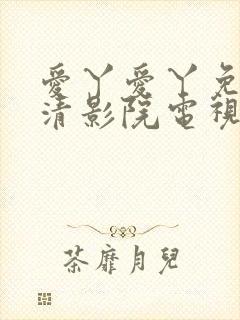 愛丫愛丫免
清影院電視
荼靡月兒